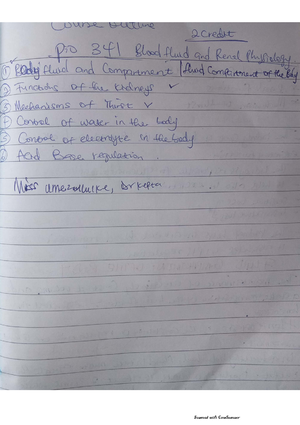 Course Outline
2 Credit
PIO 341 Blood fluid and Renal Physiology
① Body fluid and Compartment | fluid Compartment of the Body
② Functions of the kidneys ✓
③ Mechanisms of Thirst ✓
④ Control of water in the body
⑤ Control of electrolyte in the body
⑥ Acid Base regulation
Miss
Scanned with CamScanner